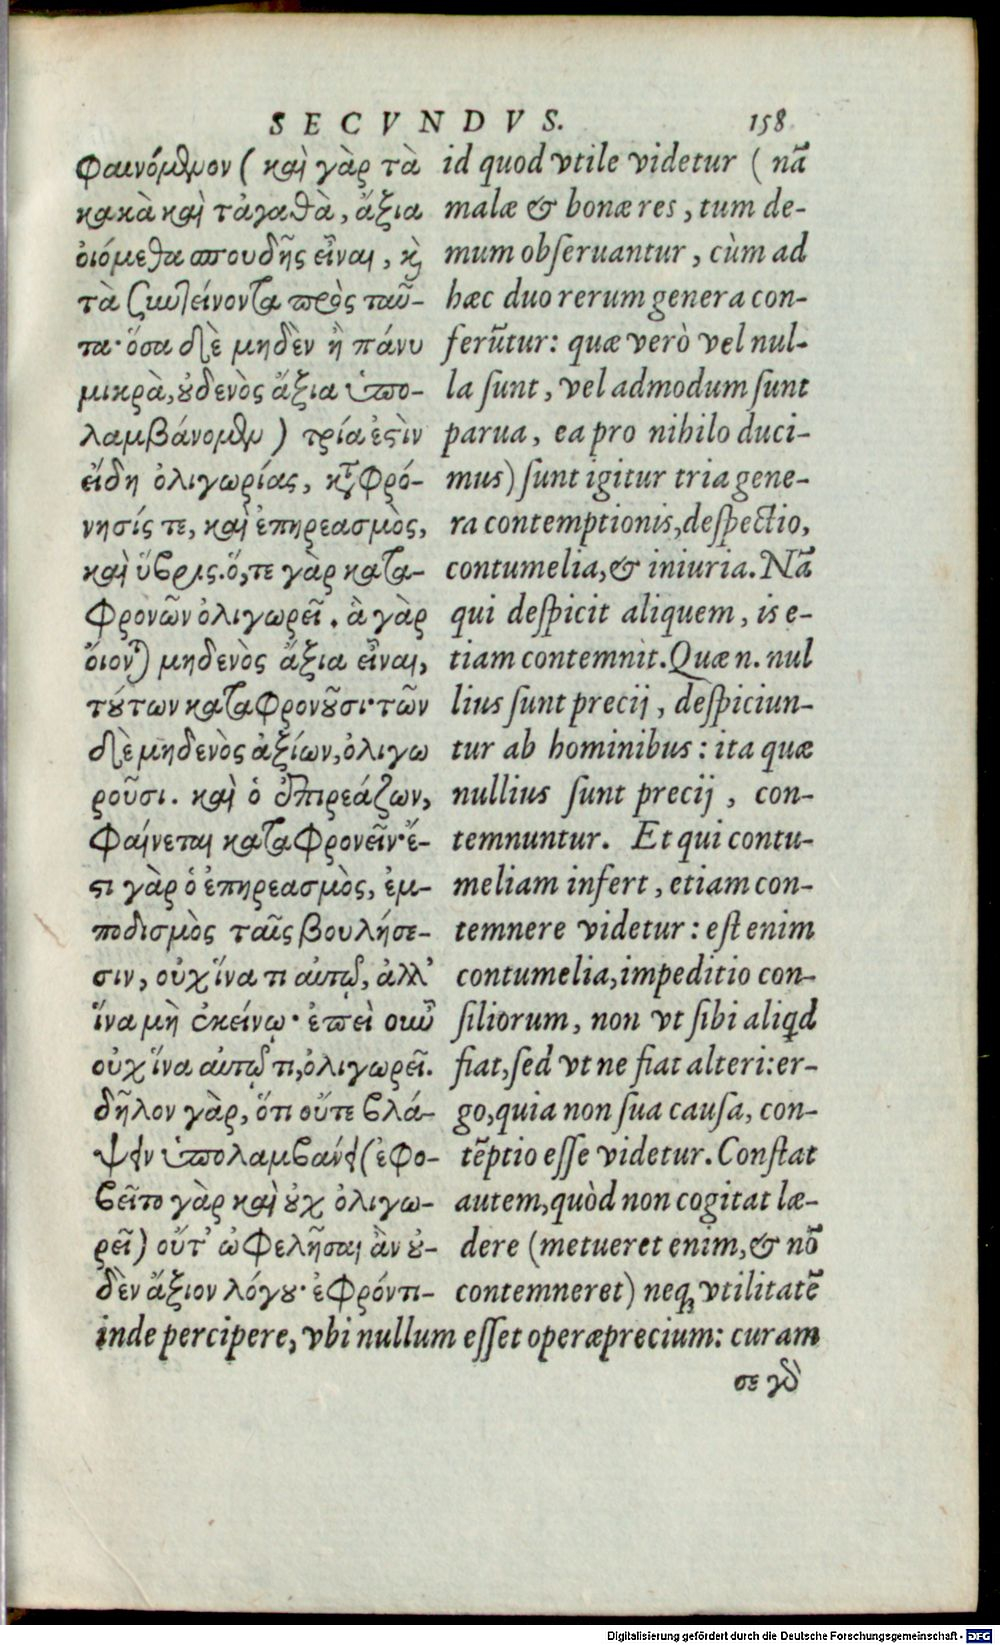 SECVNDVS. 158
φαινόμενον ( καὶ γὰρ τὰ
κακὰ καὶ τἀγαθὰ, ἄξια
οἰόμεθα σπουδῆς εἶναι, καὶ
τὰ συντείνοντα πρὸς ταῦ-
τα· ὅσα δὲ μηδὲν ἢ πάνυ
μικρὰ, οὐδενὸς ἄξια ὑπο-
λαμβάνομεν ) τρία ἐστὶν
εἴδη ὀλιγωρίας, καταφρό-
νησίς τε, καὶ ἐπηρεασμὸς,
καὶ ὕβρις. ὅ, τε γὰρ κατα-
φρονῶν ὀλιγωρεῖ. ἃ γὰρ
οἴονται μηδενὸς ἄξια εἶναι,
τούτων καταφρονοῦσι· τῶν
δὲ μηδενὸς ἀξίων, ὀλιγω
ροῦσι. καὶ ὁ ἐπιρεάζων,
φαίνεται καταφρονεῖν· ἔ-
στι γὰρ ὁ ἐπηρεασμὸς, ἐμ-
ποδισμὸς ταῖς βουλήσε-
σιν, οὐχ ἵνα τι αὐτῷ, ἀλλ'
ἵνα μὴ ἐκείνῳ· ἐπεὶ οὖν
οὐχ ἵνα αὐτῷ τι, ὀλιγωρεῖ.
δῆλον γὰρ, ὅτι οὔτε βλά-
ψειν ὑπολαμβάνει (ἐφο-
βεῖτο γὰρ καὶ οὐχ ὀλιγω-
ρεῖ) οὔτ' ὠφελῆσαι ἂν οὐ-
δὲν ἄξιον λόγου· ἐφρόντι-
id quod vtile videtur ( nā
malæ & bonæ res, tum de-
mum obſeruantur, cùm ad
hæc duo rerum genera con-
ferūtur: quæ verò vel nul-
la ſunt, vel admodum ſunt
parua, ea pro nihilo duci-
mus) ſunt igitur tria gene-
ra contemptionis, deſpectio,
contumelia, & iniuria. Nā
qui deſpicit aliquem, is e-
tiam contemnit. Quæ n. nul
lius ſunt precij, deſpiciun-
tur ab hominibus: ita quæ
nullius ſunt precij, con-
temnuntur. Et qui contu-
meliam infert, etiam con-
temnere videtur: eſt enim
contumelia, impeditio con-
ſiliorum, non vt ſibi aliqd
fiat, ſed vt ne fiat alteri: er-
go, quia non ſua cauſa, con-
tēptio eſſe videtur. Conſtat
autem, quòd non cogitat læ-
dere (metueret enim, & nō
contemneret) neq; vtilitatē
inde percipere, vbi nullum eſſet operæprecium: curam
σε γὰρ
Digitalisierung gefördert durch die Deutsche Forschungsgemeinschaft - DFG